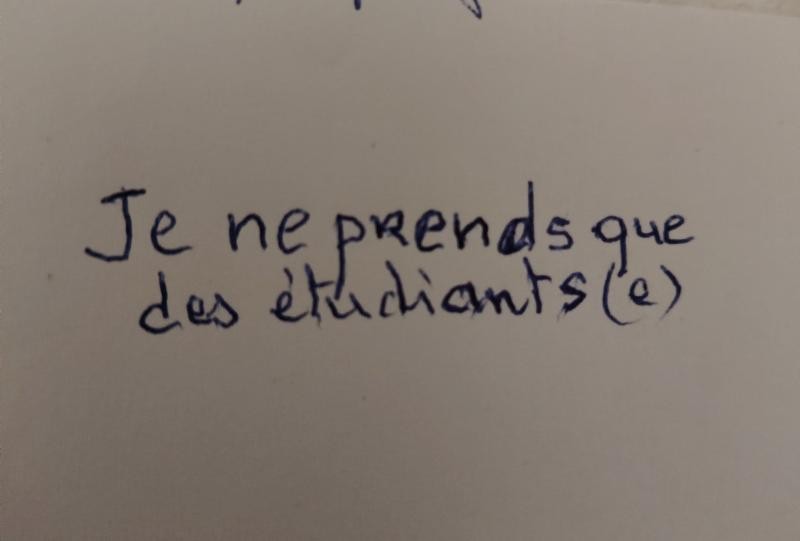 Je ne prends que
des étudiants(e)